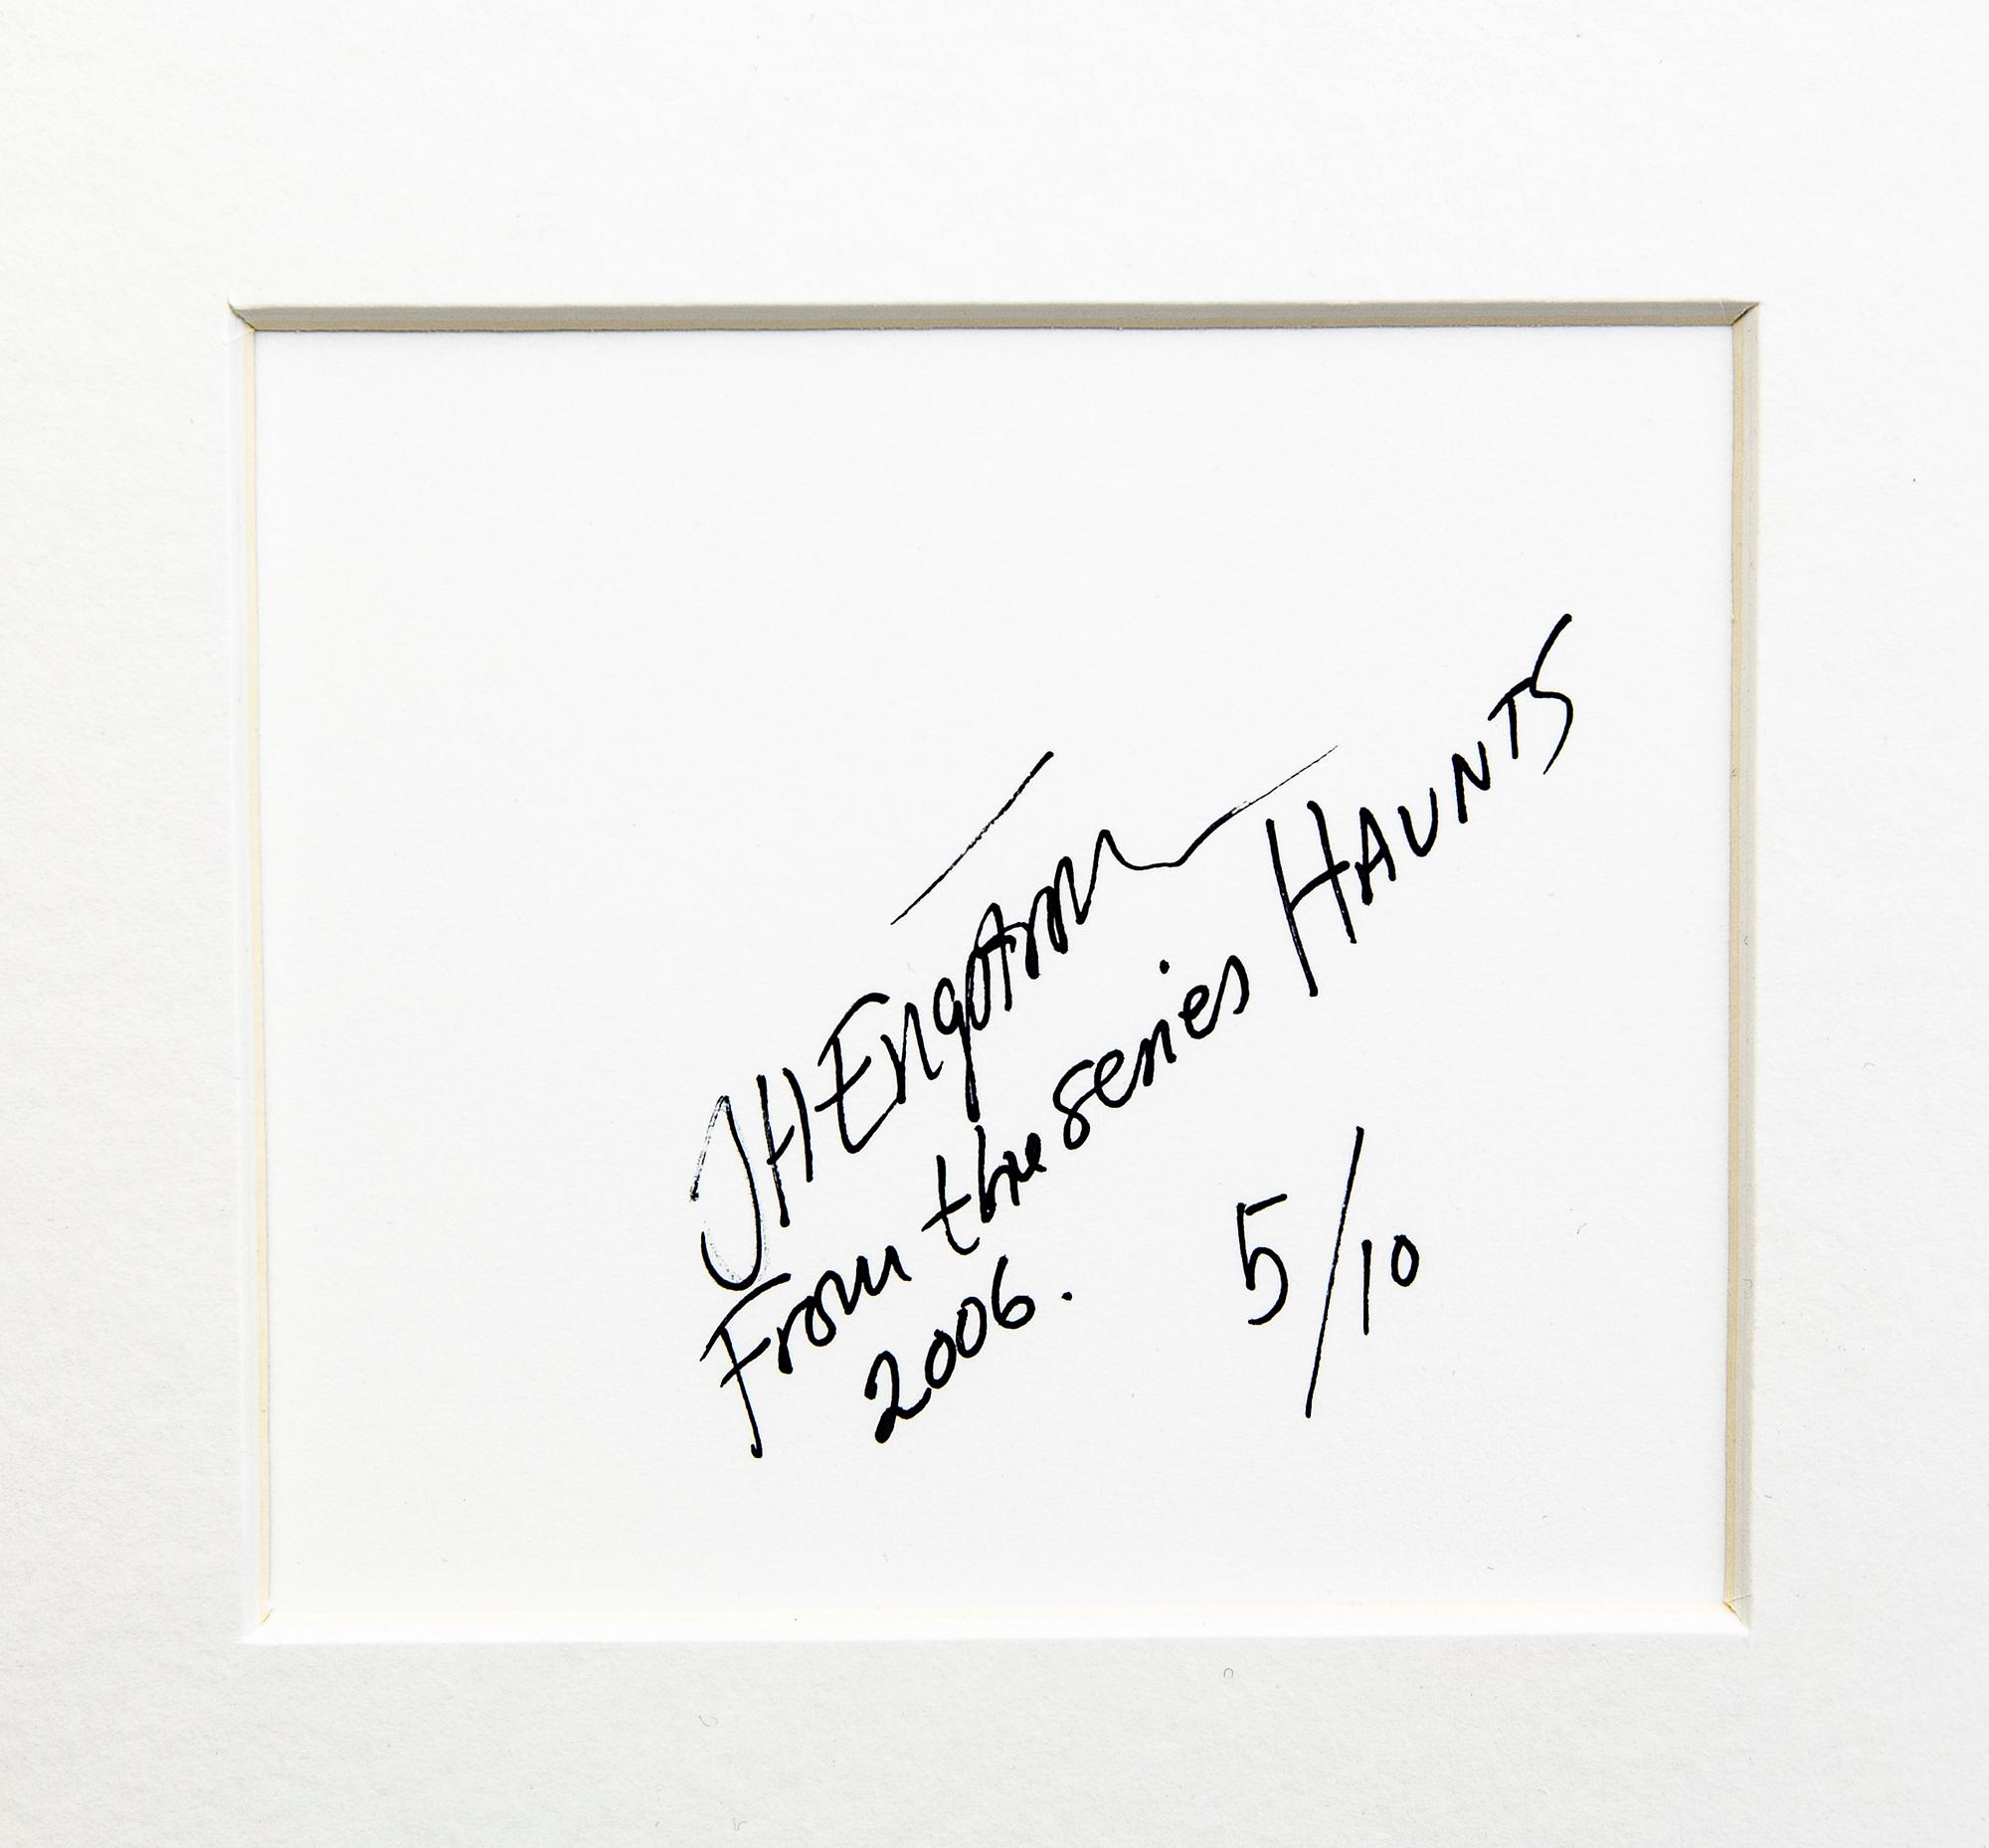 JH Engström
From the series HAUNTS
2006. 5/10